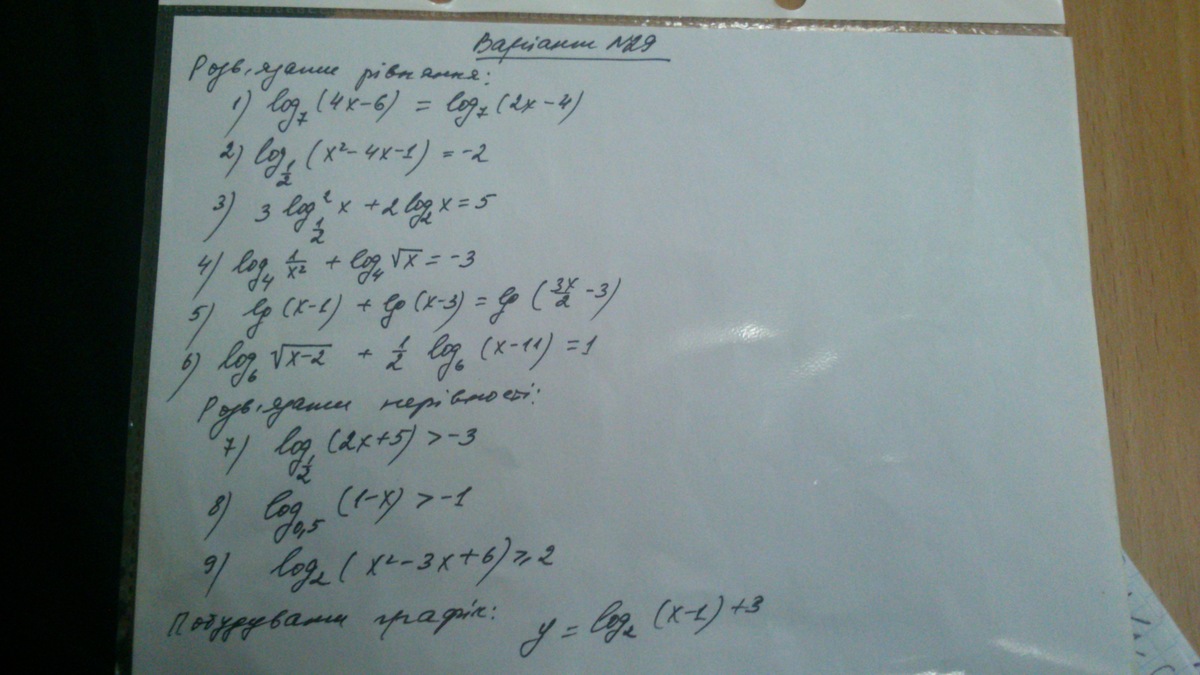 Варіант №29
Розв'язати рівняння:
1) log₇(4x-6) = log₇(2x-4)
2) log_{1/2}(x²-4x-1) = -2
3) 3 log²_{1/2} x + 2 log₂ x = 5
4) log₄ 1/x² + log₄ √x = -3
5) lg(x-1) + lg(x-3) = lg(3x/2 - 3)
6) log₆ √(x-2) + 1/2 log₆(x-11) = 1
Розв'язати нерівності:
7) log_{1/2}(2x+5) > -3
8) log_{0,5}(1-x) > -1
9) log₂(x²-3x+6) ≥ 2
Побудувати графік: y = log₂(x-1)+3